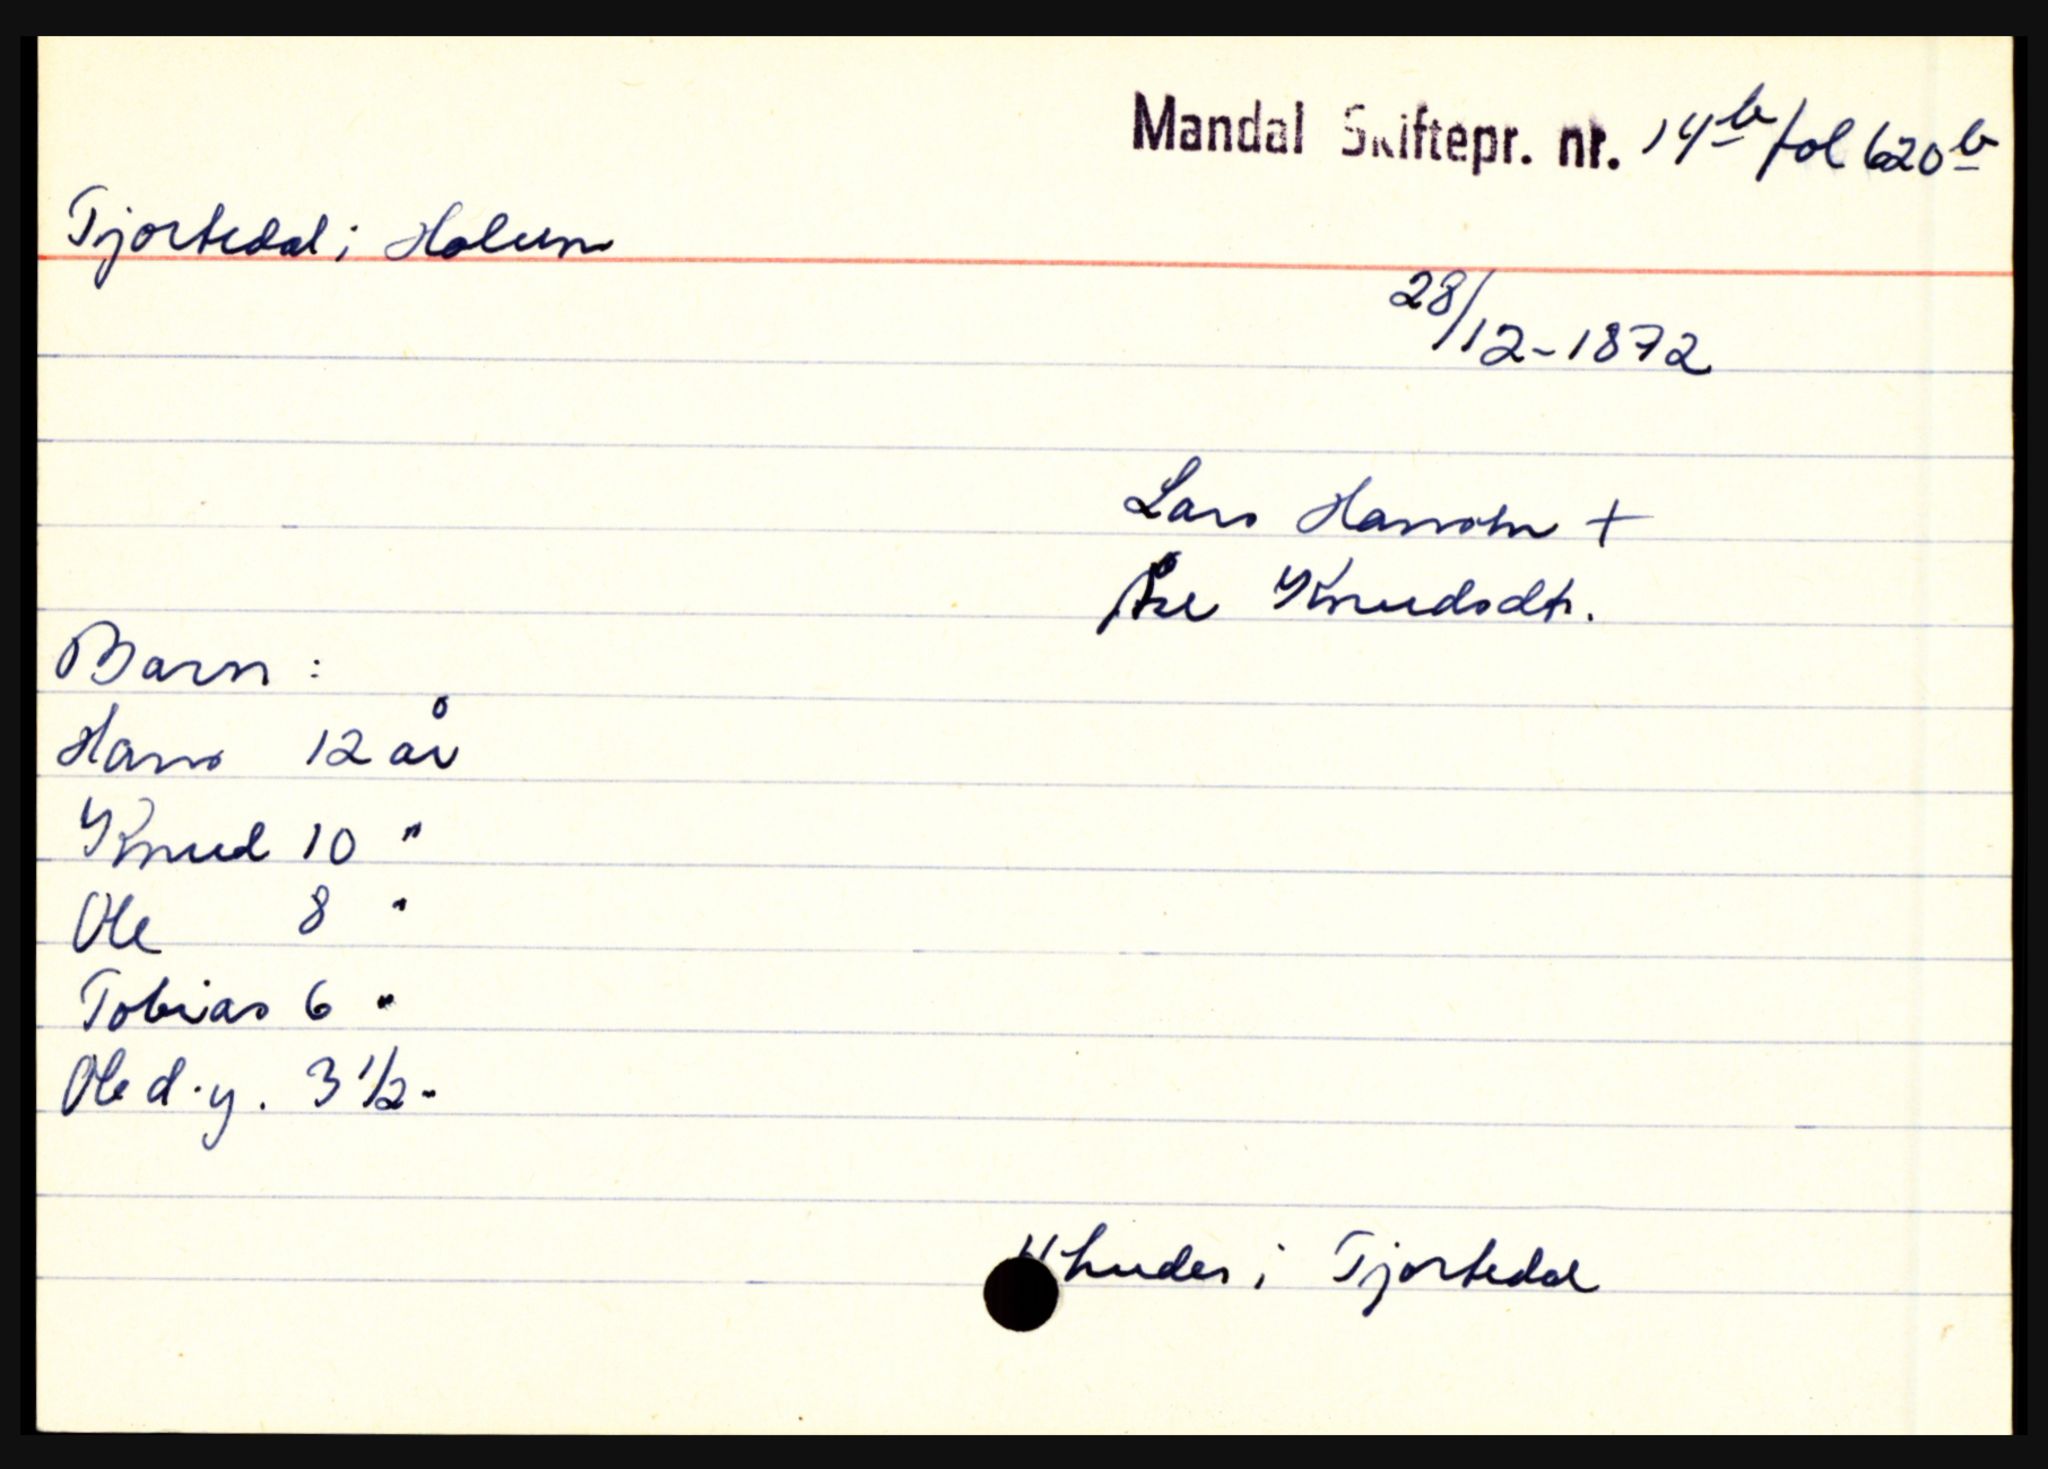 Mandal Skiftepr. nr. 14b fol 620b
Tjortedal i Holum
28/12-1872
Lars Hansen +
Åse Knudsdtr.
Barn :
Hans 12 år
Knud 10 "
Ole 8 "
Tobias 6 "
Ole d.y. 3 1/2 "
4 huder i Tjortedal